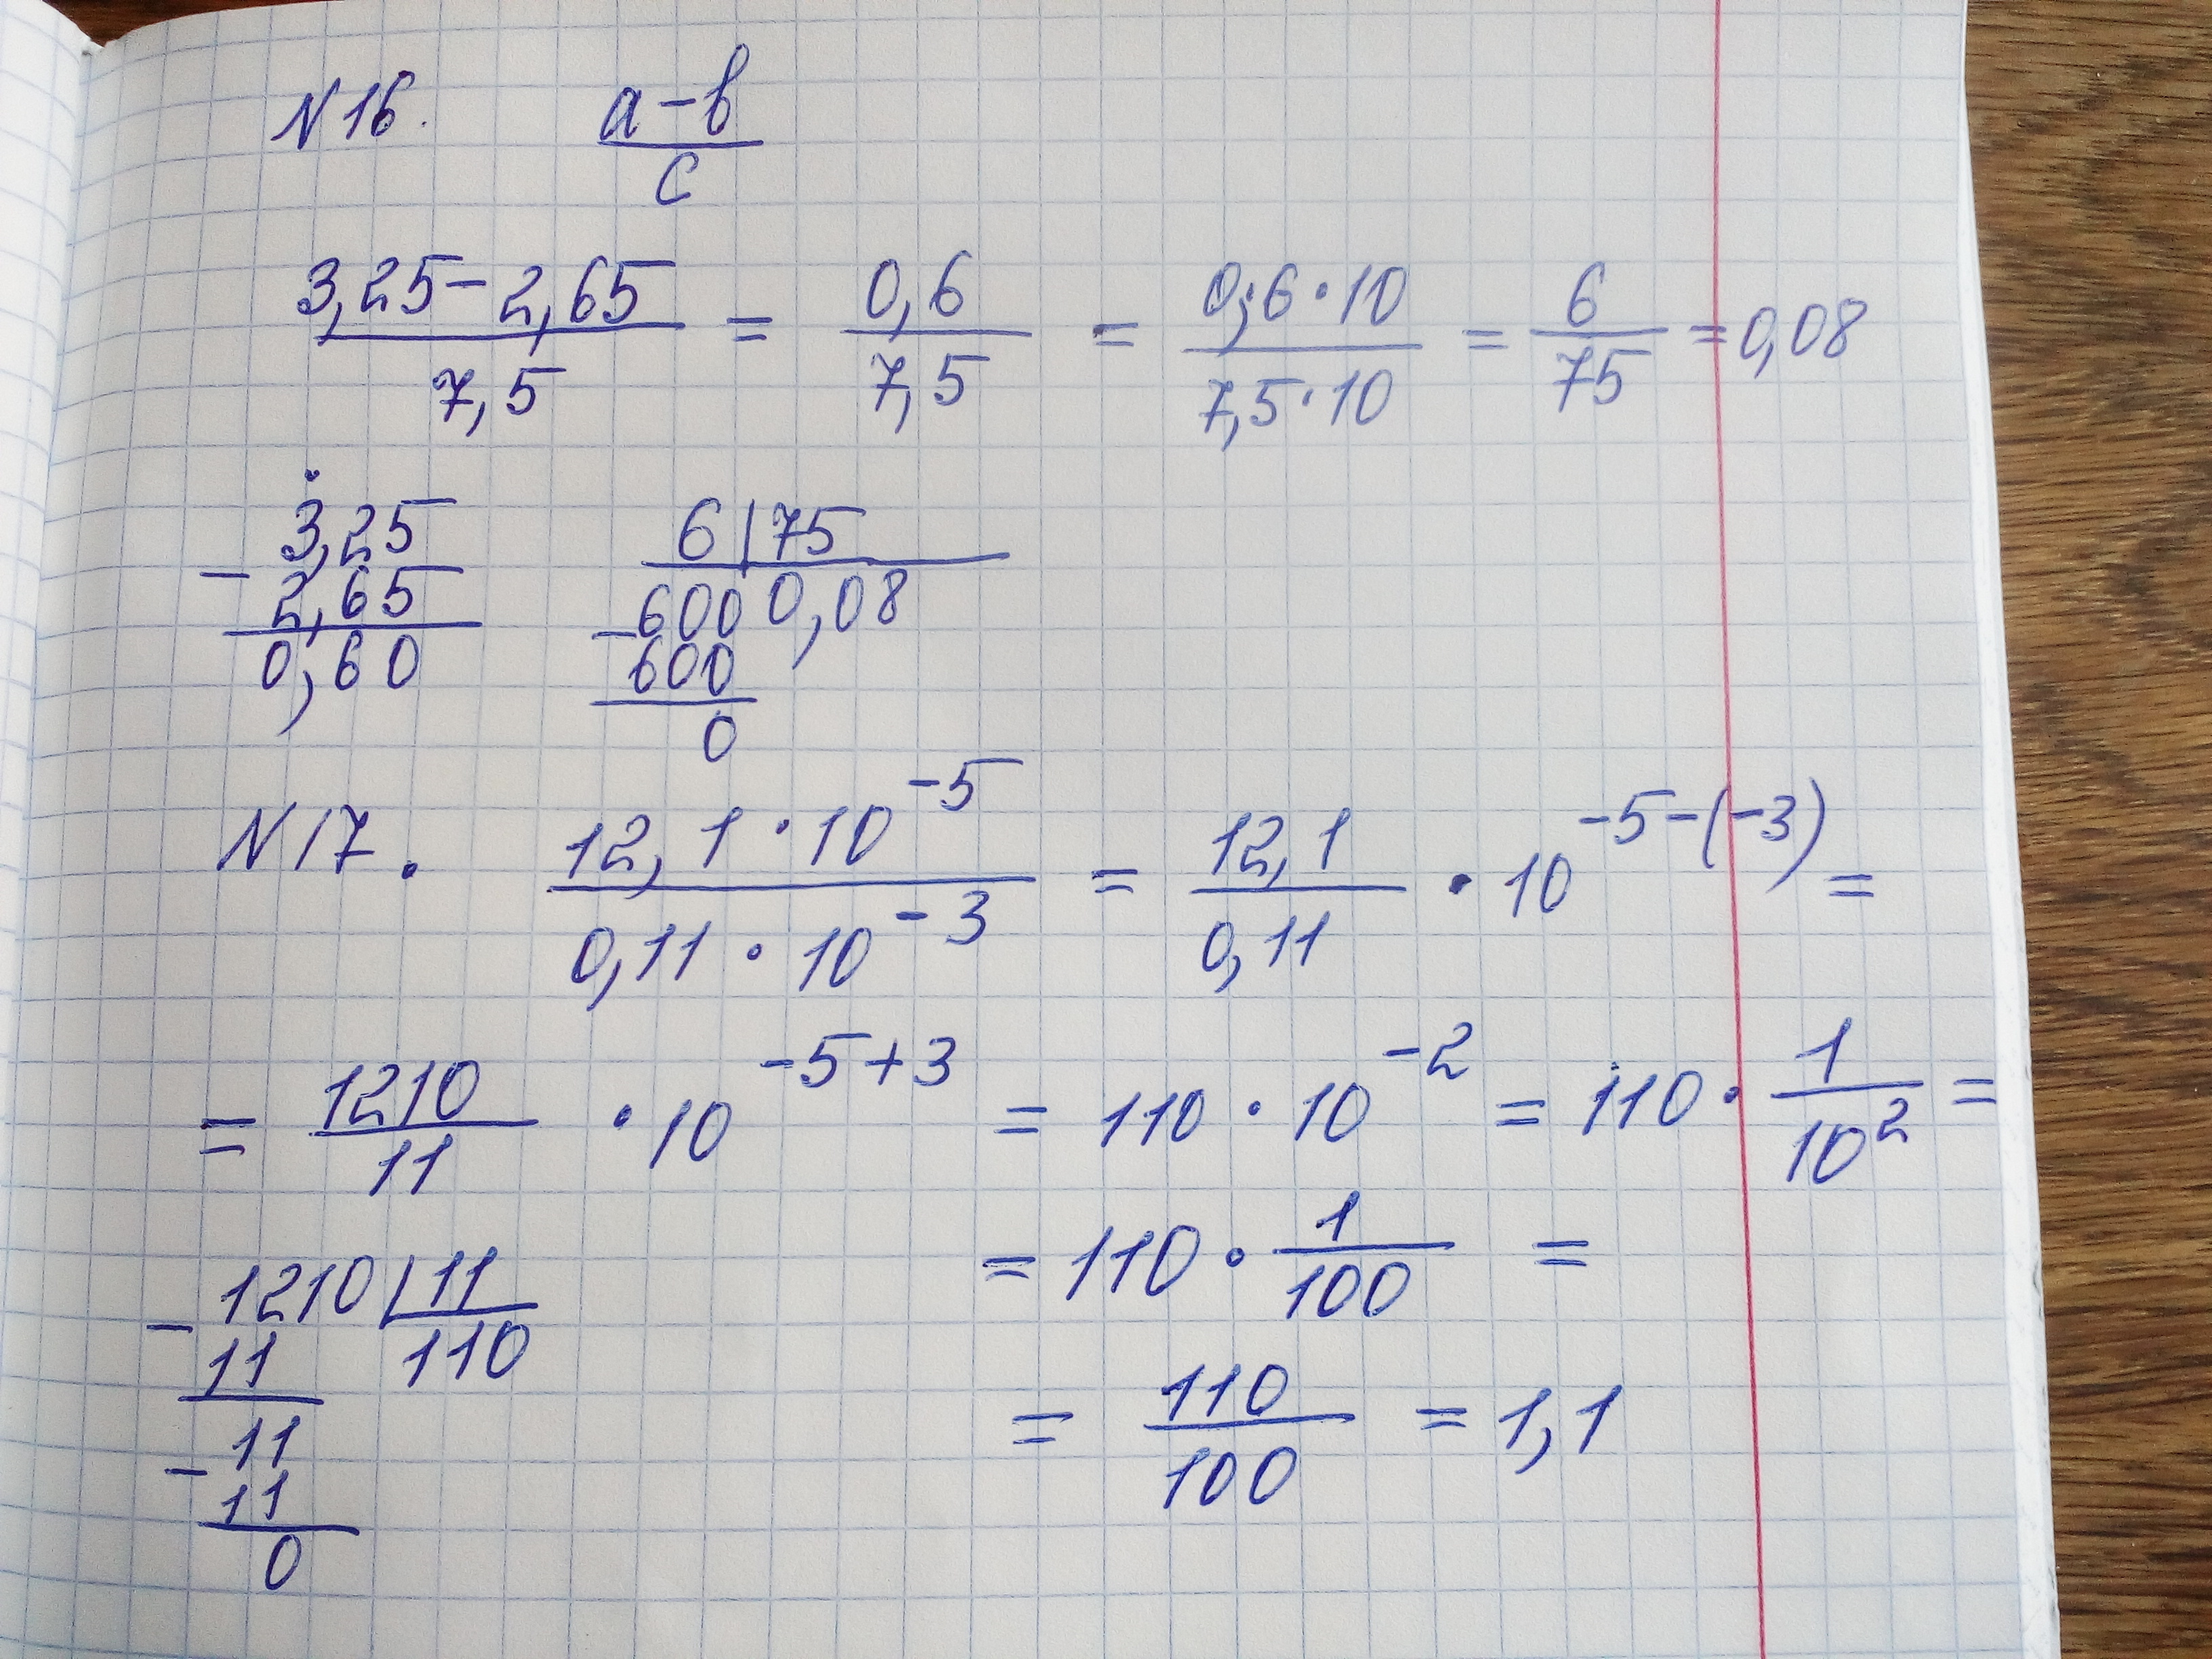 N16. a-b/c
3,25-2,65/7,5 = 0,6/7,5 = 0,6·10/7,5·10 = 6/75 = 0,08
3,25 - 2,65 0,60
6 | 75 0,08 - 600 600 0
N17. 12,1·10^-5/0,11·10^-3 = 12,1/0,11 · 10^-5-(-3) =
= 1210/11 · 10^-5+3 = 110·10^-2 = 110·1/10^2 =
= 110·1/100 =
= 110/100 = 1,1
- 1210 | 11
11 110
- 11
11
0